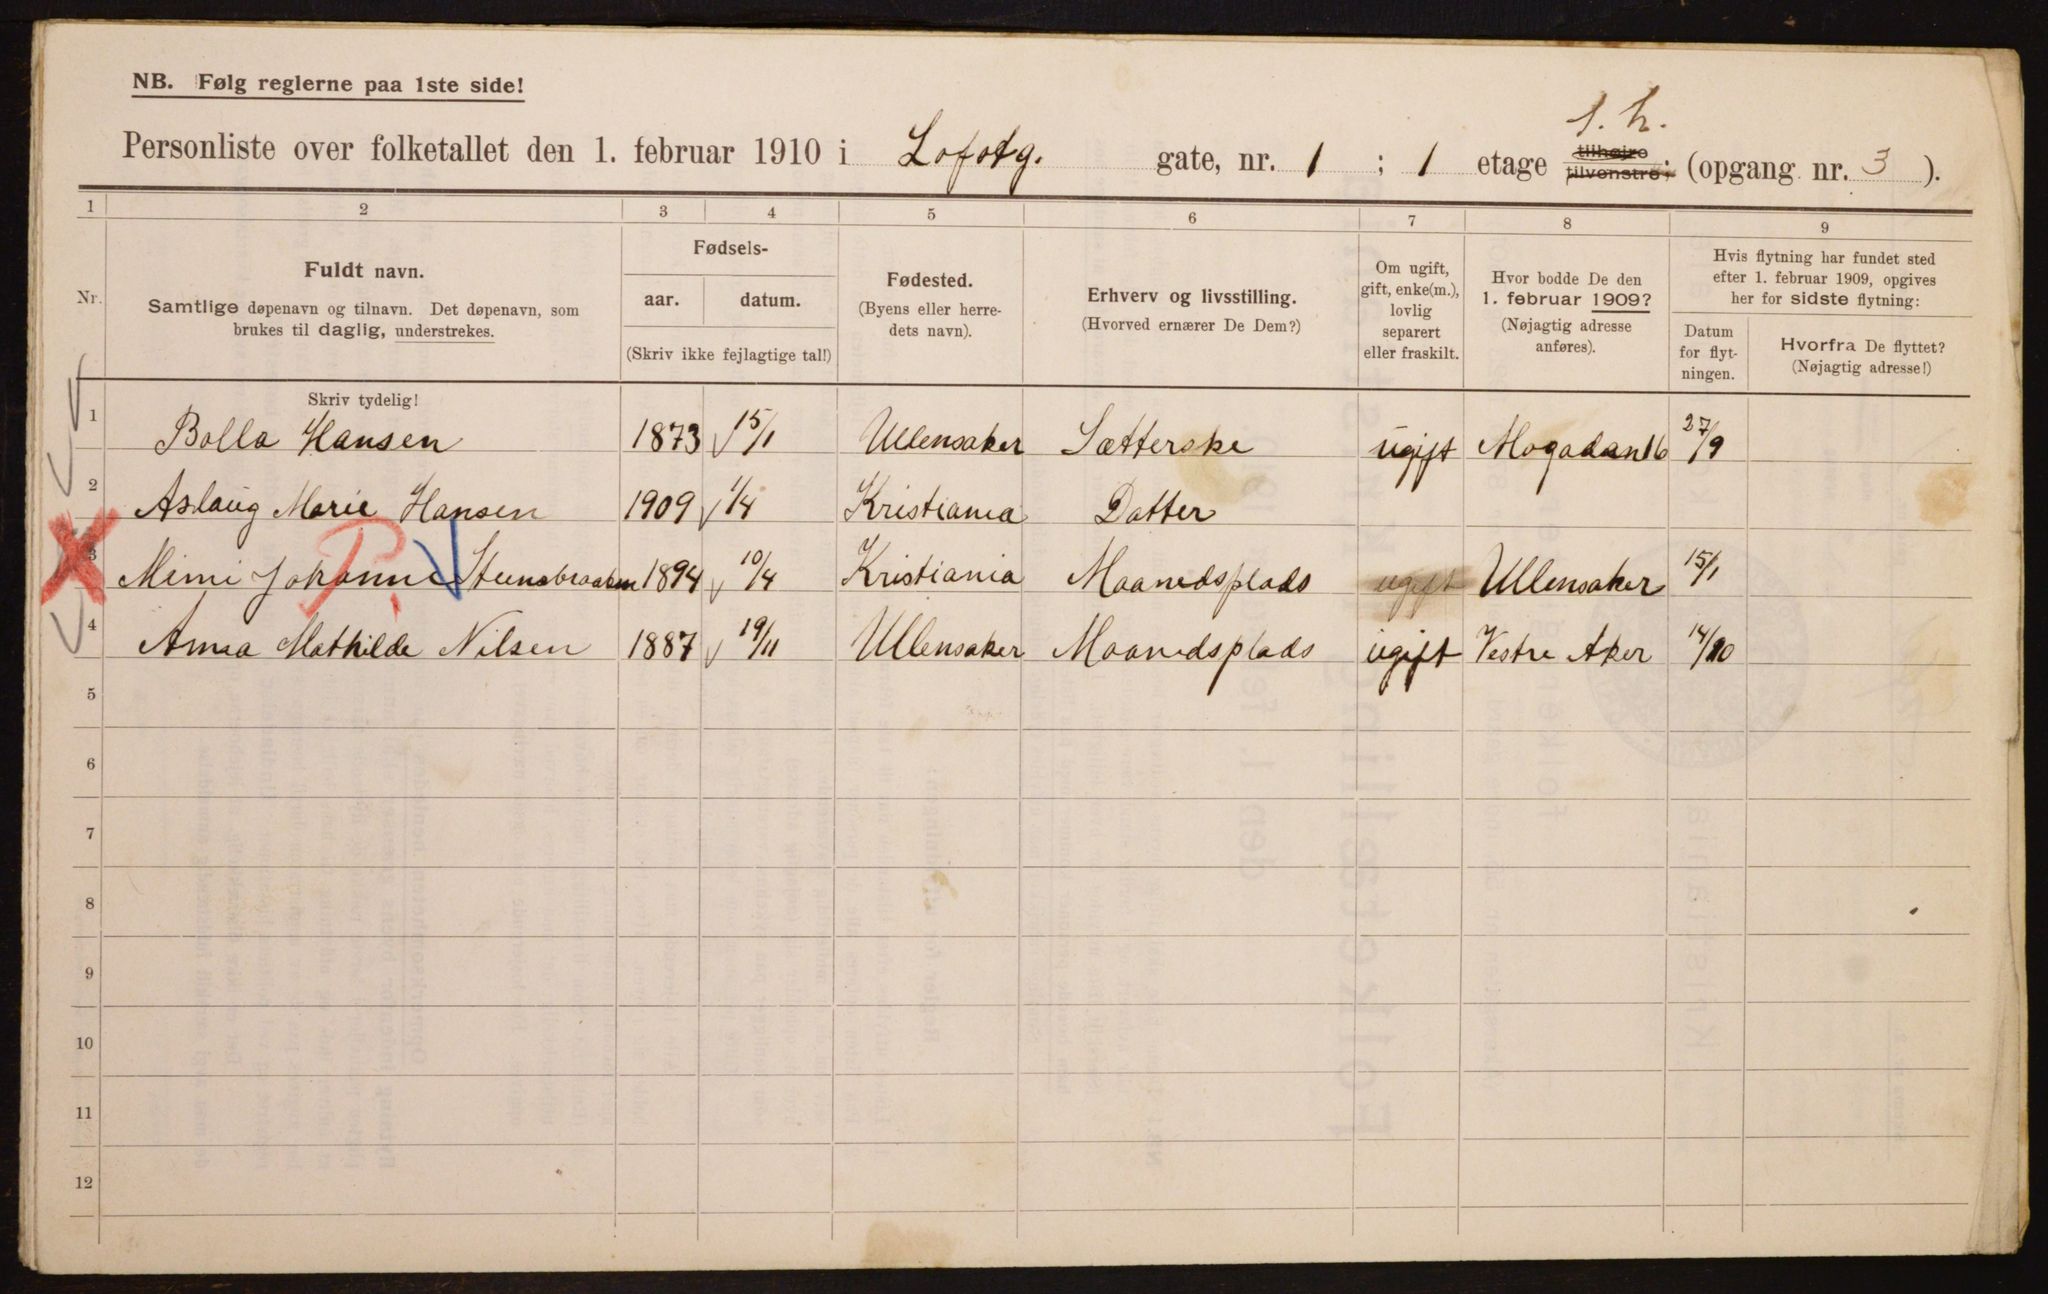 NB. Følg reglerne paa 1ste side!
1. h.
Personliste over folketallet den 1. februar 1910 i Lofotg. gate, nr. 1 ; 1 etage tilhøjre tilvenstre; (opgang nr. 3 ).
1 2 3 4 5 6 7 8 9
Nr.
Fuldt navn.
Samtlige døpenavn og tilnavn. Det døpenavn, som
brukes til daglig, understrekes.
Fødsels-
aar. datum.
(Skriv ikke fejlagtige tal!)
Fødested.
(Byens eller herre-
dets navn).
Erhverv og livsstilling.
(Hvorved ernærer De Dem?)
Om ugift,
gift, enke(m.),
lovlig
separert
eller fraskilt.
Hvor bodde De den
1. februar 1909?
(Nøjagtig adresse
anføres).
Hvis flytning har fundet sted
efter 1. februar 1909, opgives
her for sidste flytning:
Datum
for flyt-
ningen.
Hvorfra De flyttet?
(Nøjagtig adresse!)
Skriv tydelig!
1 Bolla Hansen 1873 15/1 Ullensaker Sætterske ugift Mogadan 16 27/9
2 Aslaug Marie Hansen 1909 1/4 Kristiania Datter
3 Mimi Johanne Steensbraaten 1894 10/4 Kristiania Maanedsplads ugift Ullensaker 15/1
4 Anna Mathilde Nilsen 1887 19/11 Ullensaker Maanedsplads ugift Vestre Aker 14/10
5
6
7
8
9
10
11
12